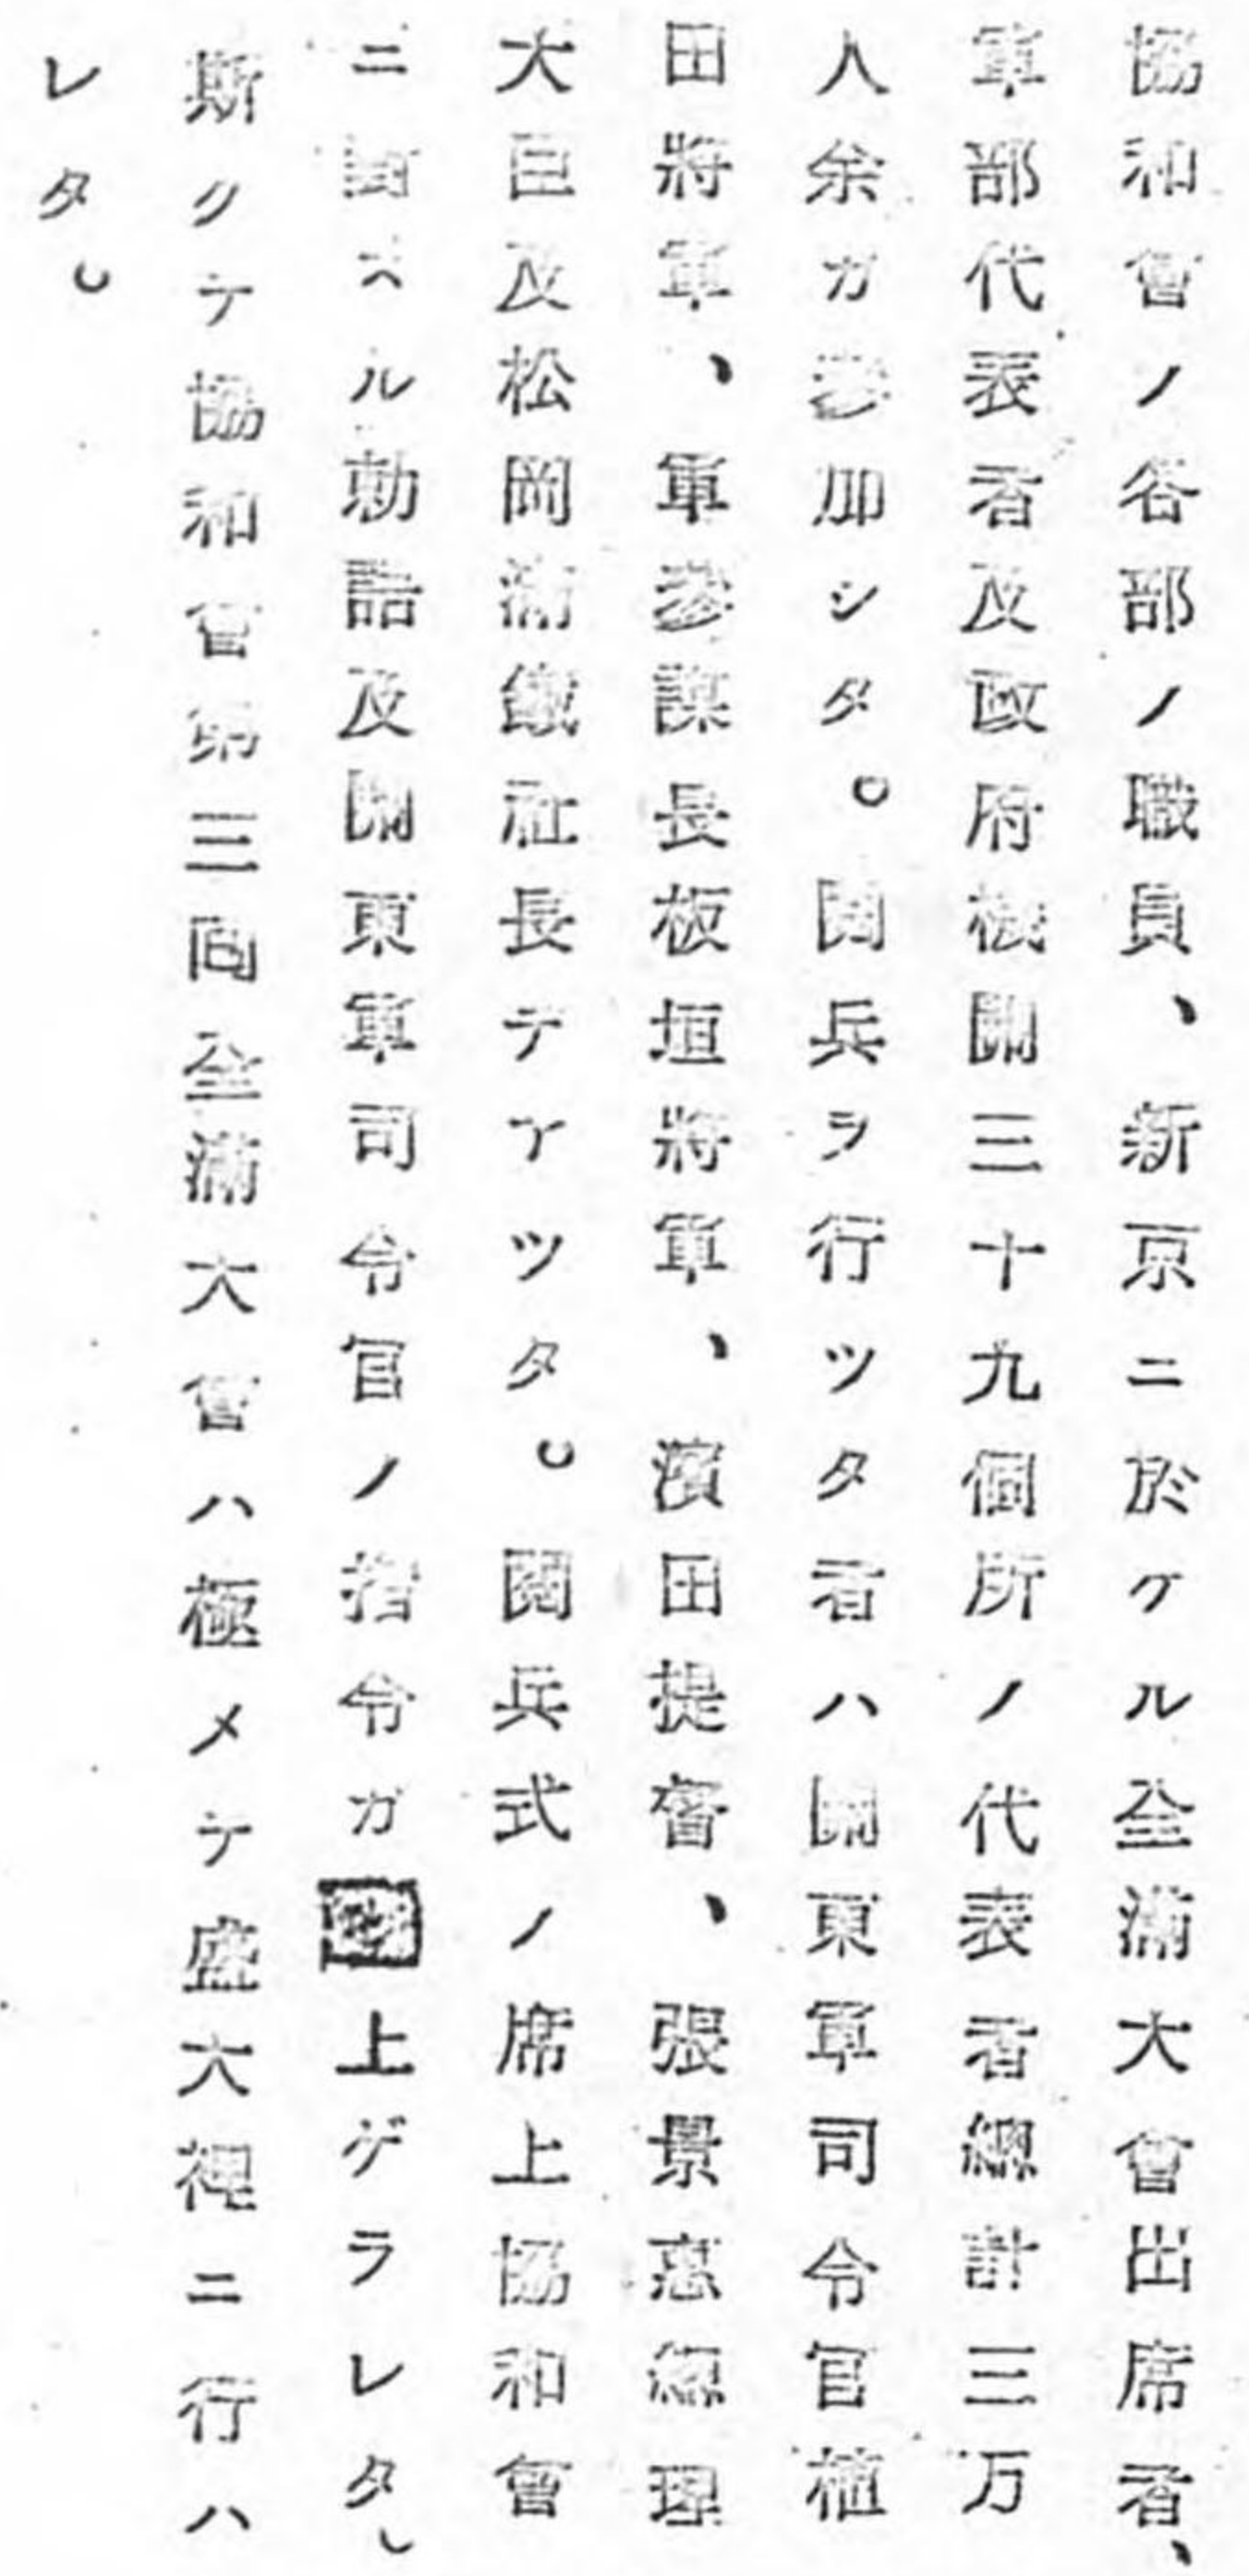 協和會ノ各部ノ職員、新京ニ於ケル全滿大會出席者、
軍部代表者及政府機關三十九個所ノ代表者總計三万
人余ガ參加シタ。閱兵ヲ行ツタ者ハ關東軍司令官植
田將軍、軍參謀長板垣將軍、濱田提督、張景惠總理
大臣及松岡滿鐵社長デアツタ。閱兵式ノ席上協和會
ニ對スル勅語及關東軍司令官ノ指令ガ上ゲラレタ。
斯クテ協和會第三回全滿大會ハ極メテ盛大裡ニ行ハ
レタ。